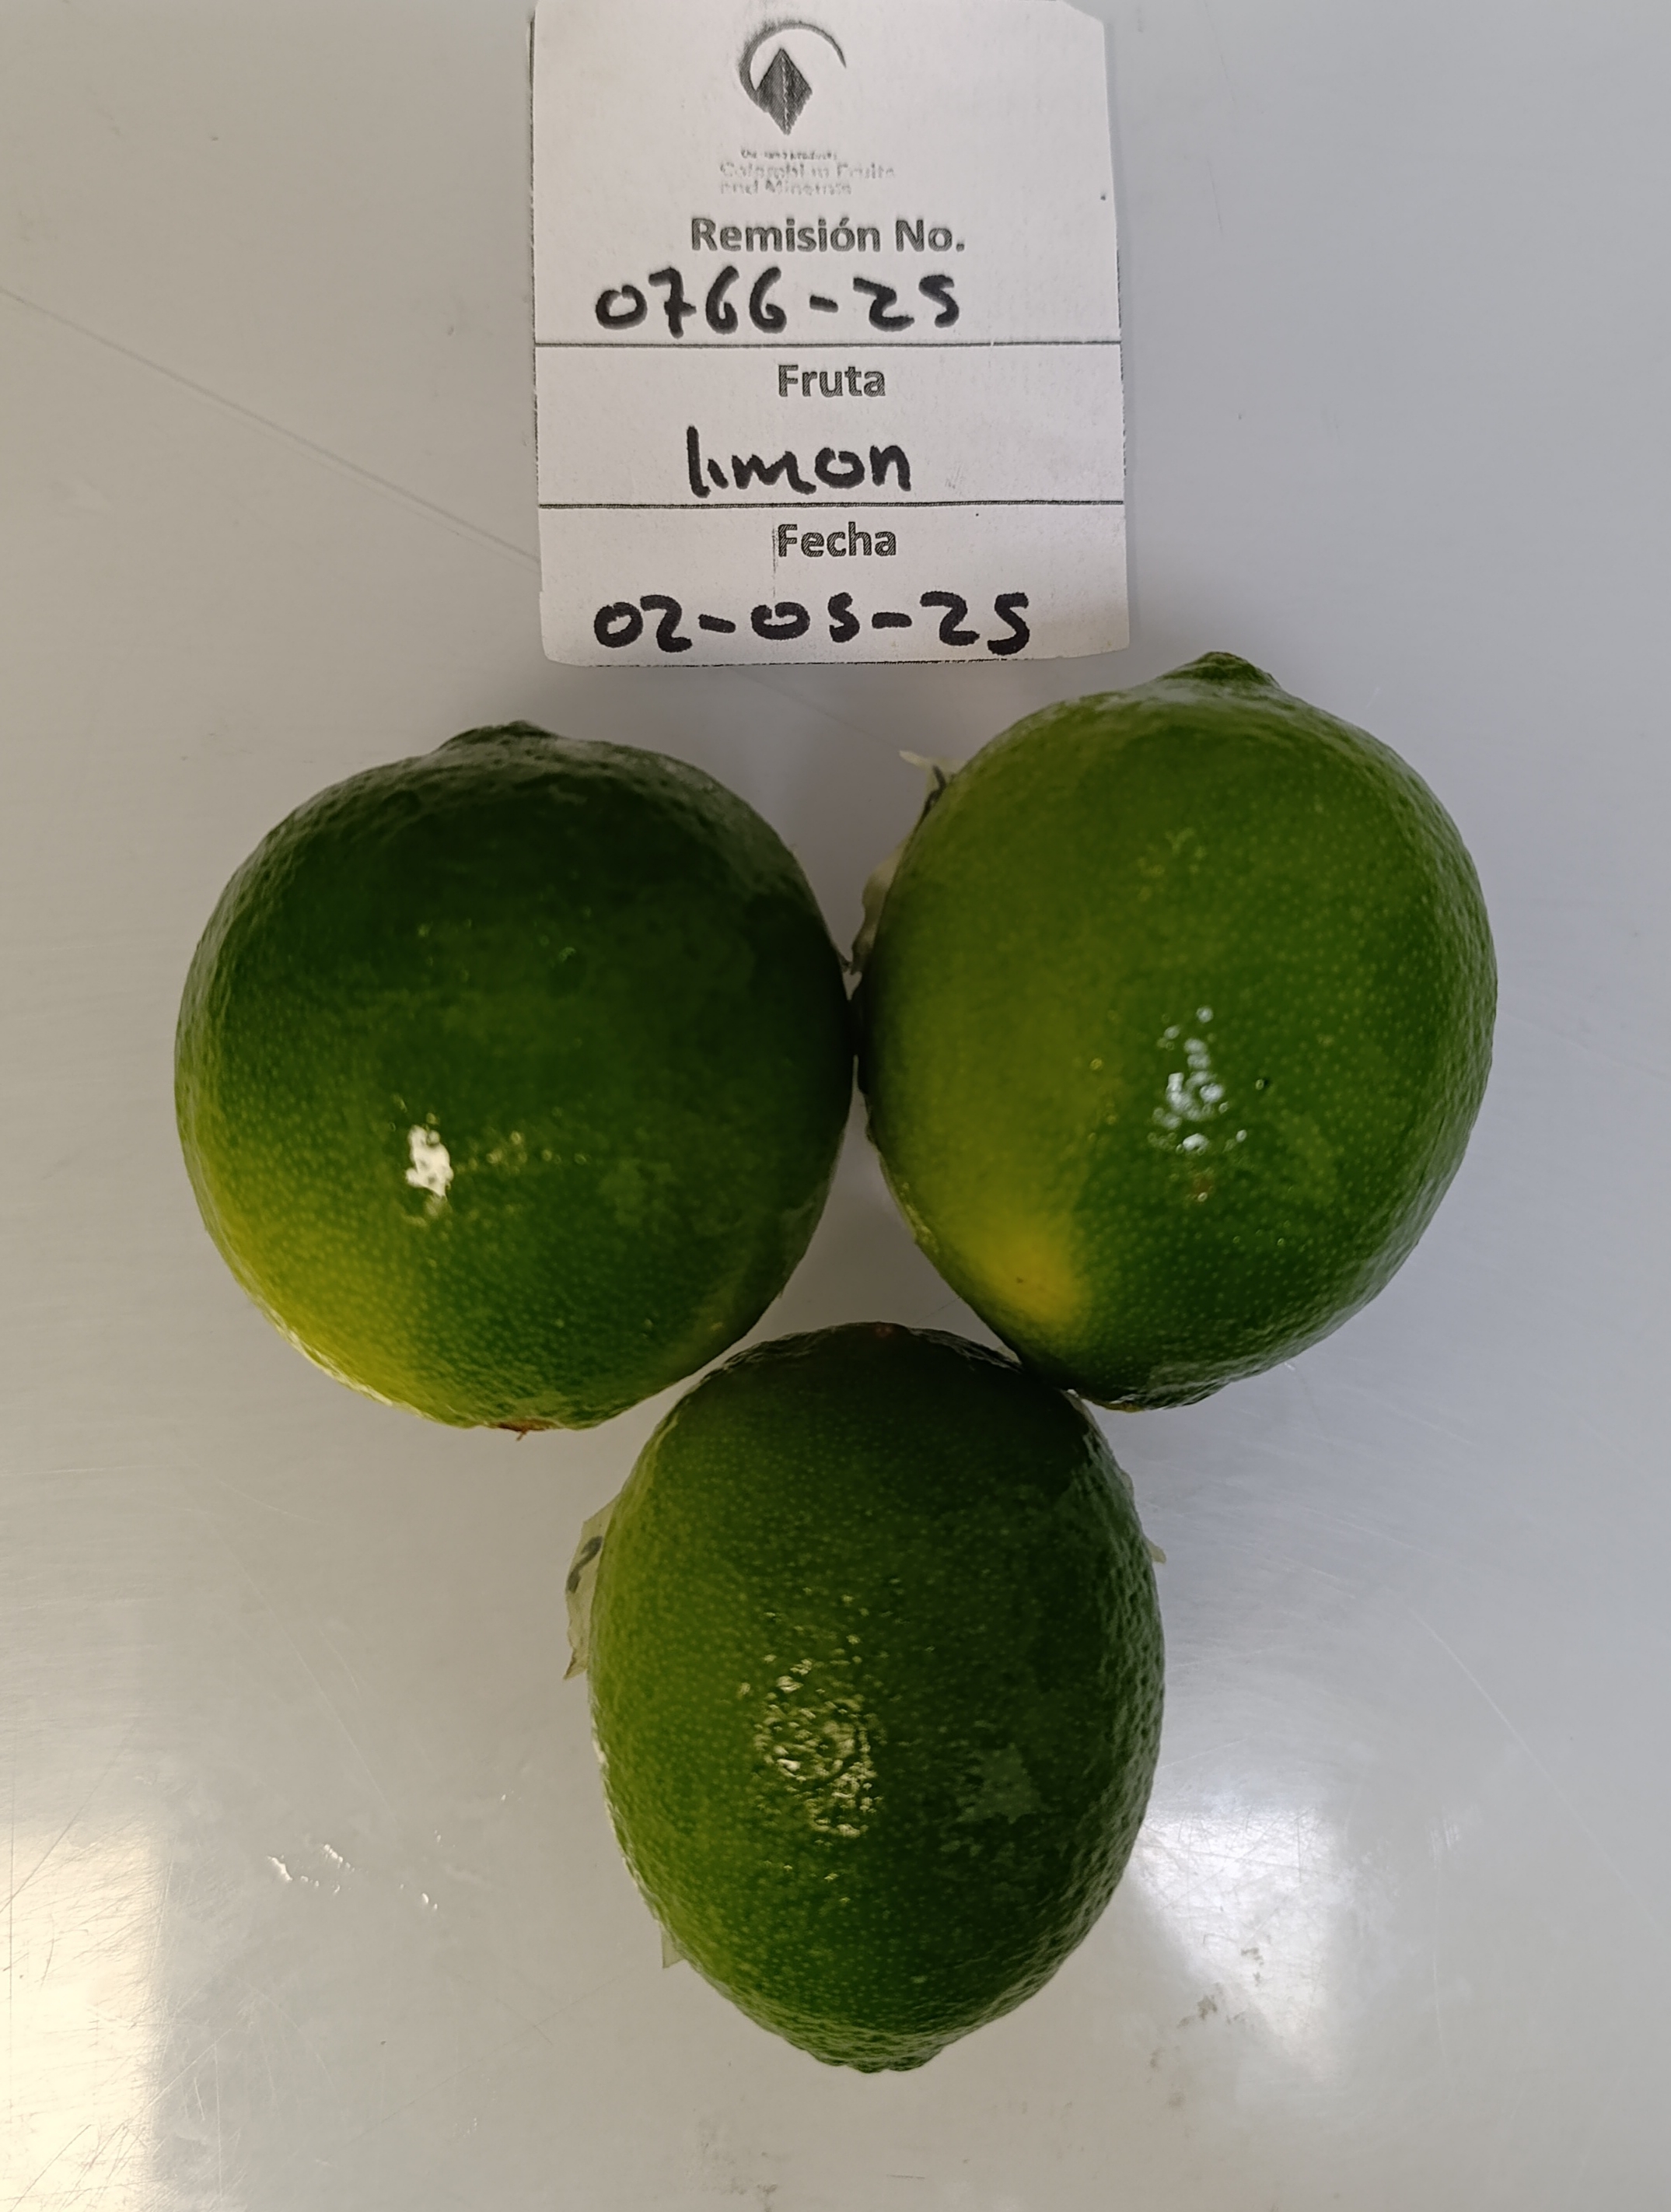 Colombian Fruits
and Minerals
Remisión No.
0766-25
Fruta
limon
Fecha
02-05-25